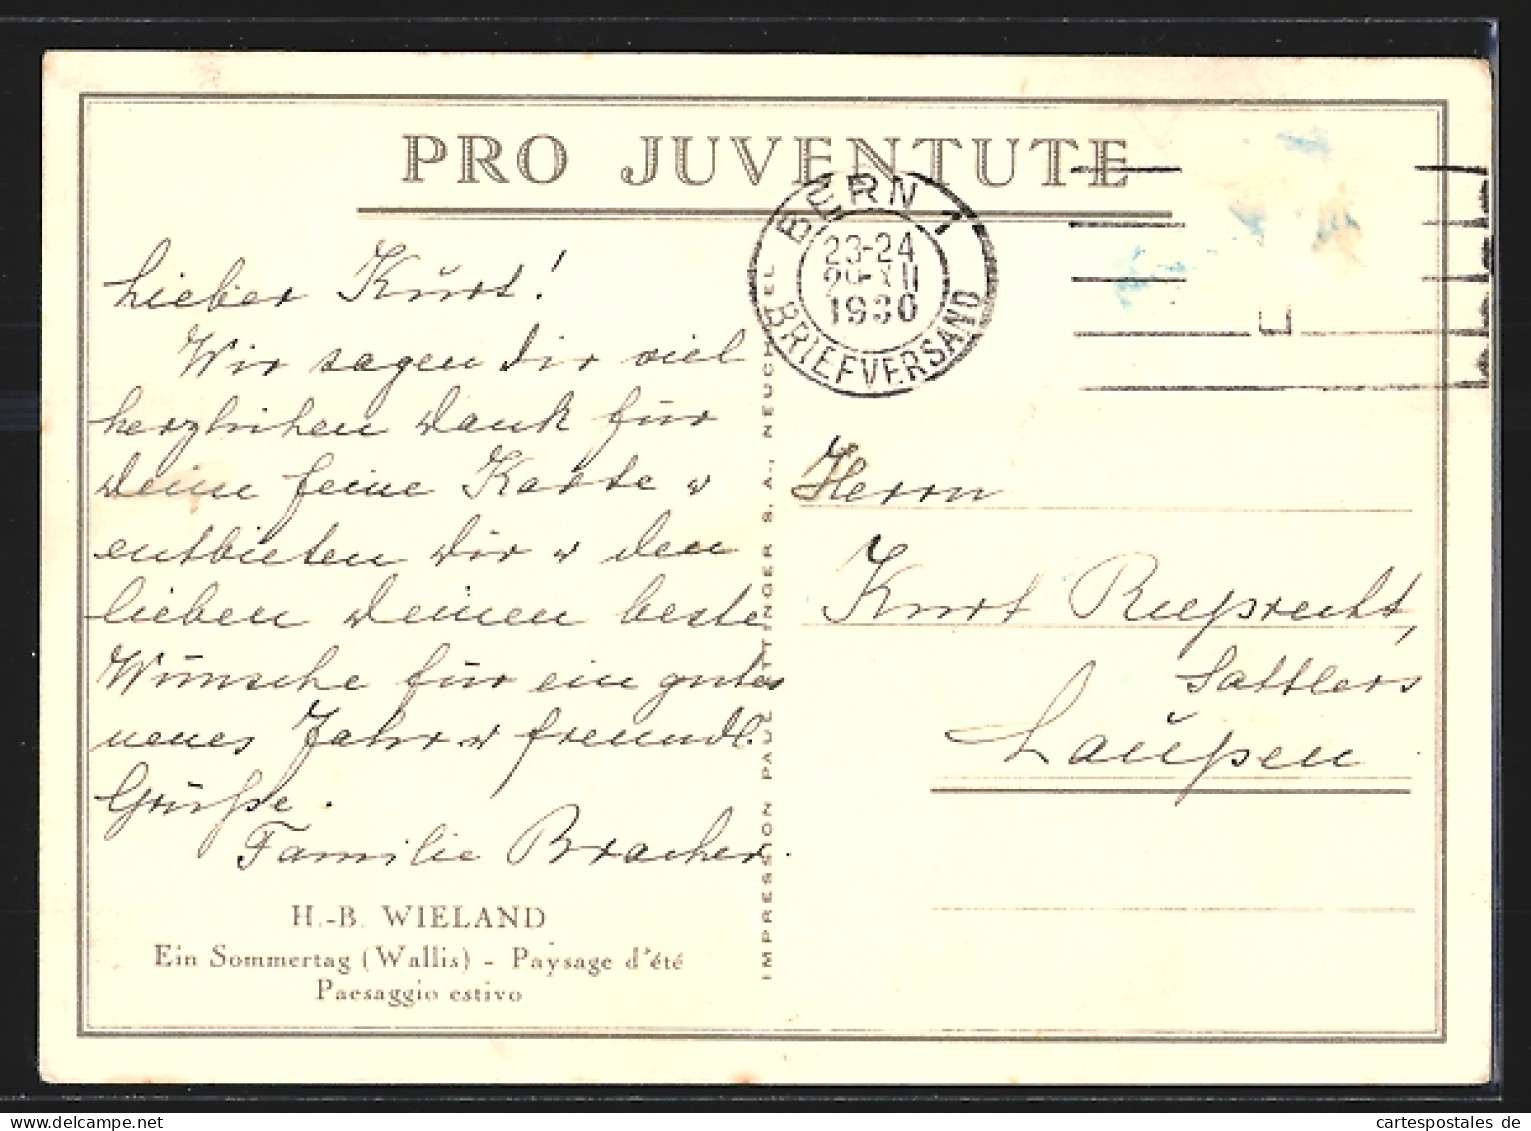 PRO JUVENTUTE
BERN 1
23-24
29-XII
1930
BRIEFVERSAND
Lieber Kurt!
Wir sagen Dir viel
herzlichen Dank für
Deine feine Karte u
entbieten Dir u den
lieben Deinen beste
Wünsche für ein gutes
neues Jahr u freundl.
Grüsse.
Familie Bracher.
H.-B. WIELAND
Ein Sommertag (Wallis) - Paysage d'été
Paesaggio estivo
IMPRESSION PAUL ATTINGER S. A., NEUCHATEL
Herrn
Kurt Rueprecht,
Sattlers
Laupen
delcampe.net
cartespostales de